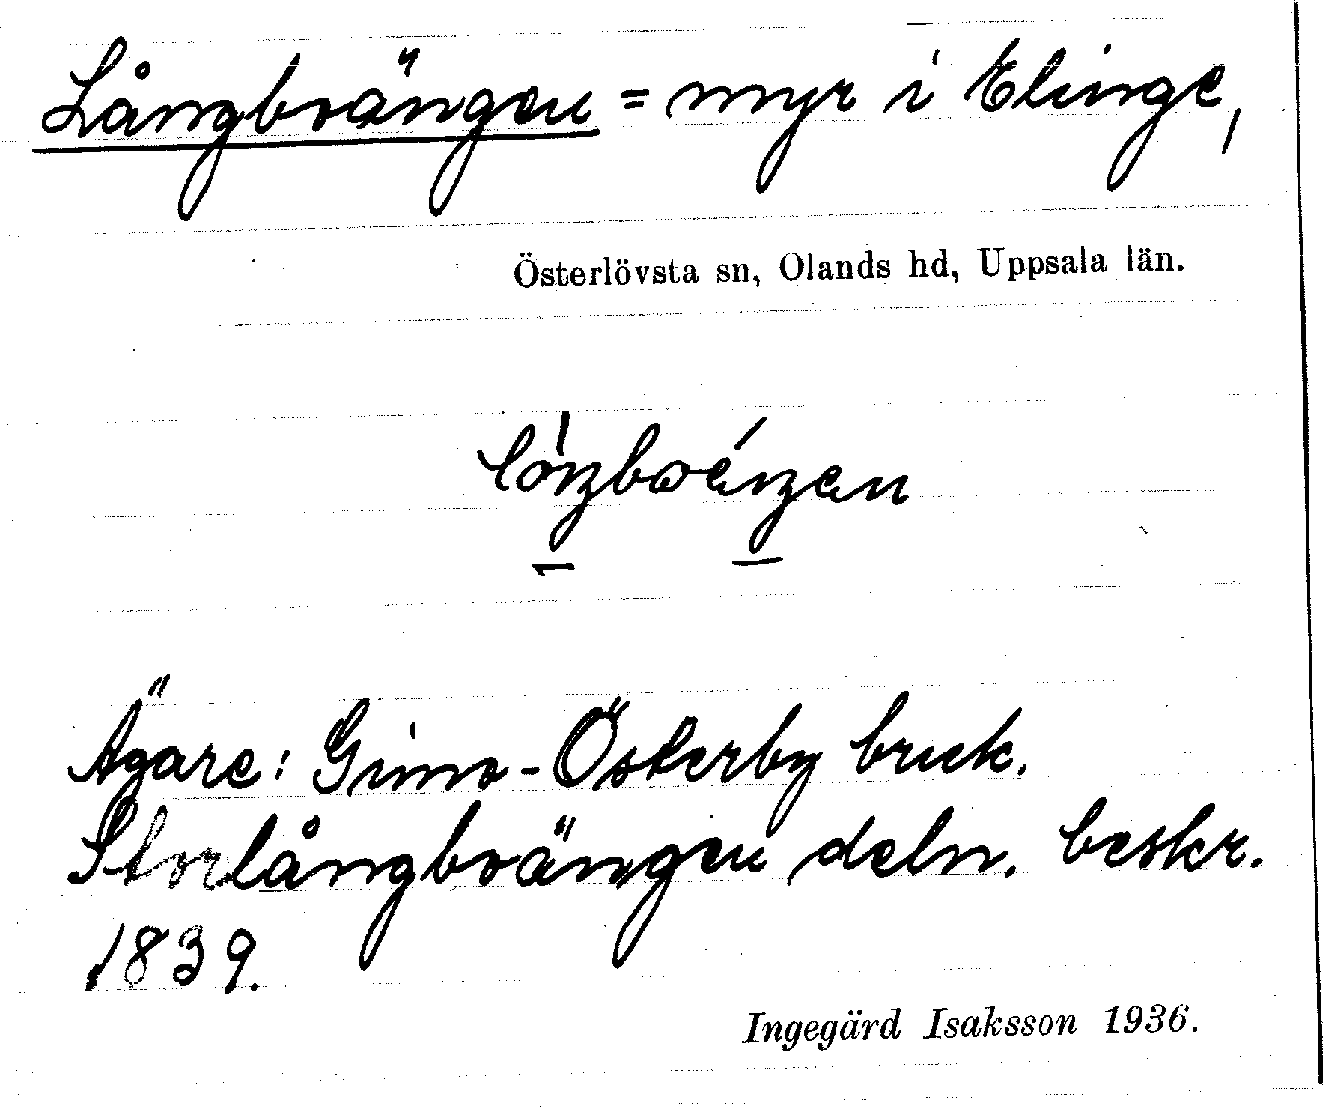 Långbroängen = myr i Elinge,
Österlövsta sn, Olands hd, Uppsala län.
Ägare: Gimo-Österby bruk.
Storlångbroängen deln. beskr.
1839.
Ingegärd Isaksson 1936.